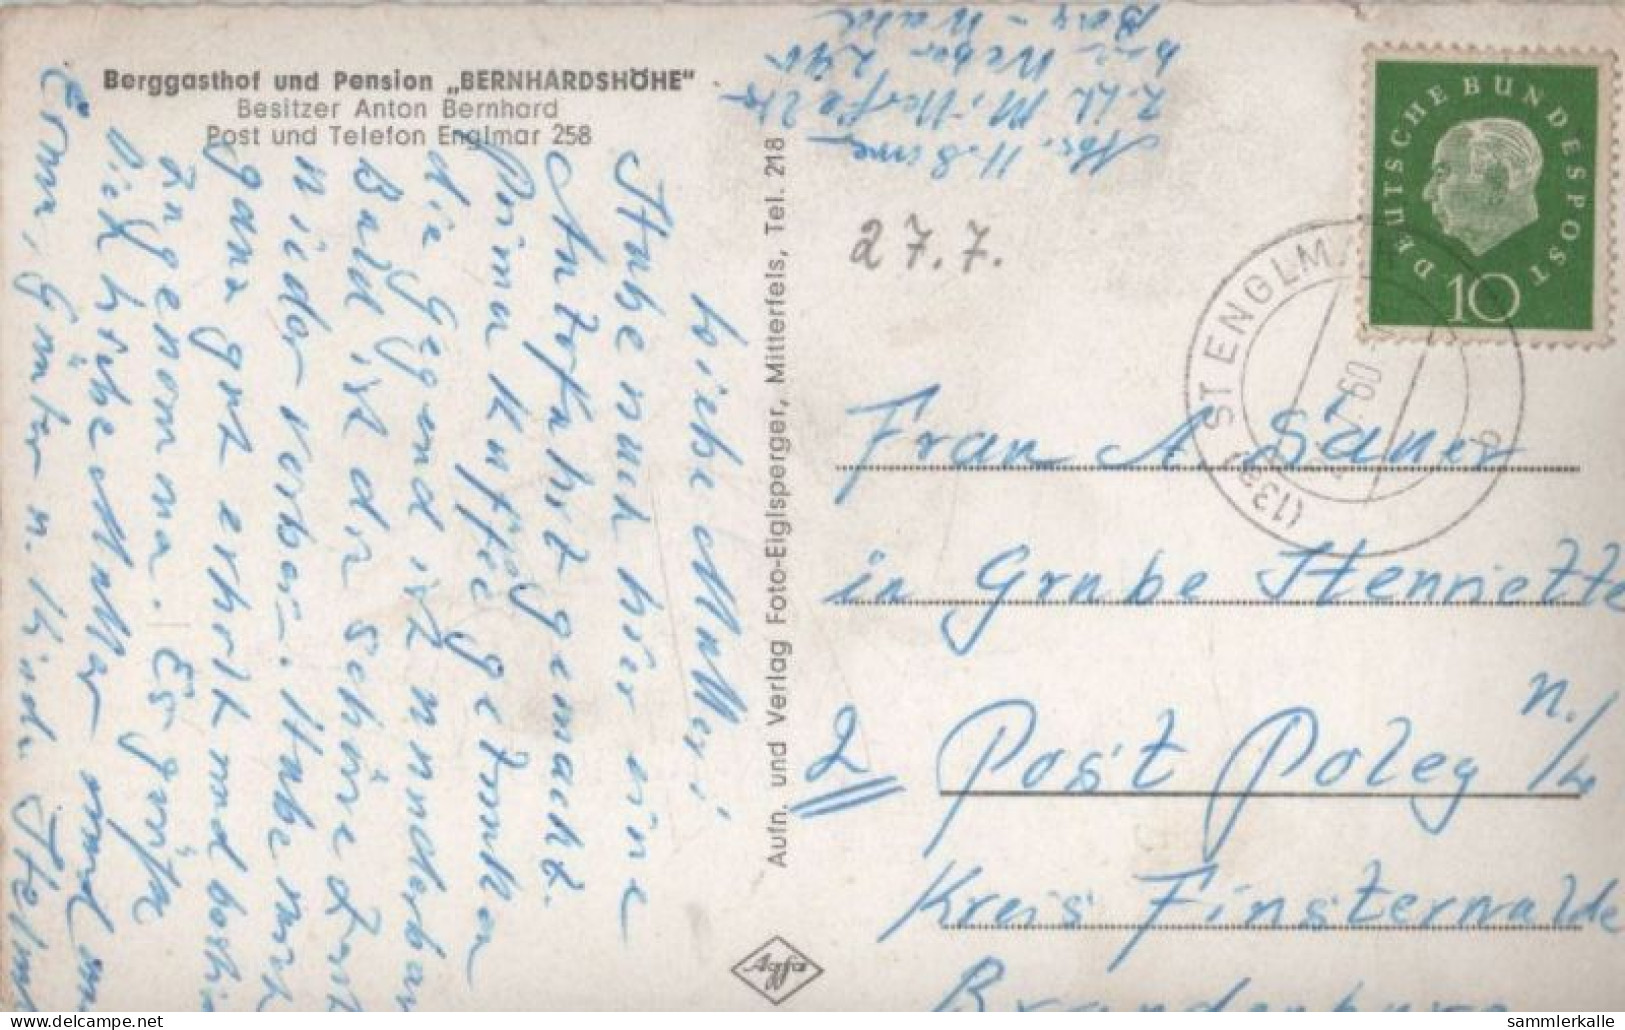 Berggasthof und Pension „BERNHARDSHÖHE"
Besitzer Anton Bernhard
Post und Telefon Englmar 258
Liebe Mutter!
Habe nach hier eine
Autofahrt gemacht.
Prima Kaffee getrunken
die Gegend ist wunderbar
Bald ist der schöne Zeit
wieder vorbei. Habe mich
ganz gut erholt und
zugenommen. Es grüßt
Dich liebe Mutter und
Erna, Günter u. Kind Helmut
Aufn. und Verlag Foto-Eiglsperger, Mitterfels, Tel. 218
Agfa
Abs. H.
z. Zt. Mitterfels
bei Weber 240
Bay-Wald
27.7.
DEUTSCHE BUNDESPOST
10
ST ENGLM
60
b
Frau A Sauer
in Grube Henriette
2 Post Poley N./L
Kreis Finsterwalde
Brandenburg
sammlerkalle